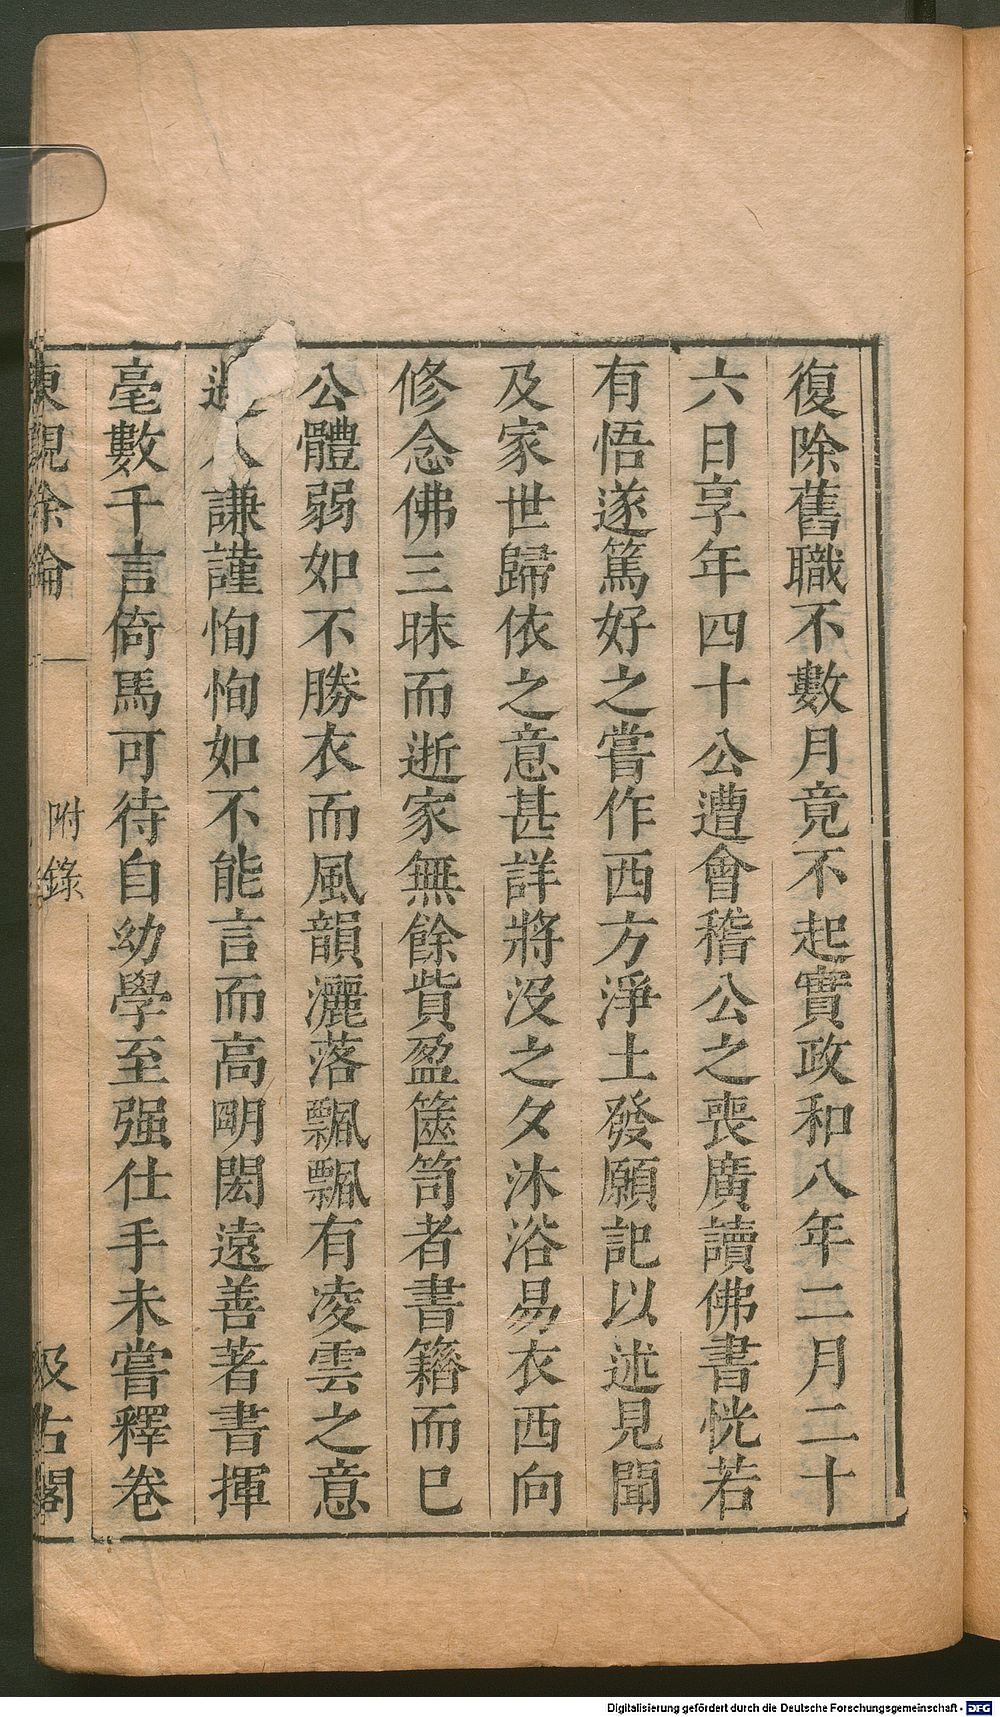 復除舊職不數月竟不起實政和八年二月二十
六日享年四十公遭會稽公之喪廣讀佛書恍若
有悟遂篤好之嘗作西方淨土發願記以述見聞
及家世歸依之意甚詳將沒之夕沐浴易衣西向
修念佛三昧而逝家無餘貲盈篋笥者書籍而已
公體弱如不勝衣而風韻灑落飄飄有凌雲之意
人謙謹恂恂如不能言而高明閎遠善著書揮
毫數千言倚馬可待自幼學至强仕手未嘗釋卷
東觀余論
附錄
汲古閣
Digitalisierung gefördert durch die Deutsche Forschungsgemeinschaft - DFG